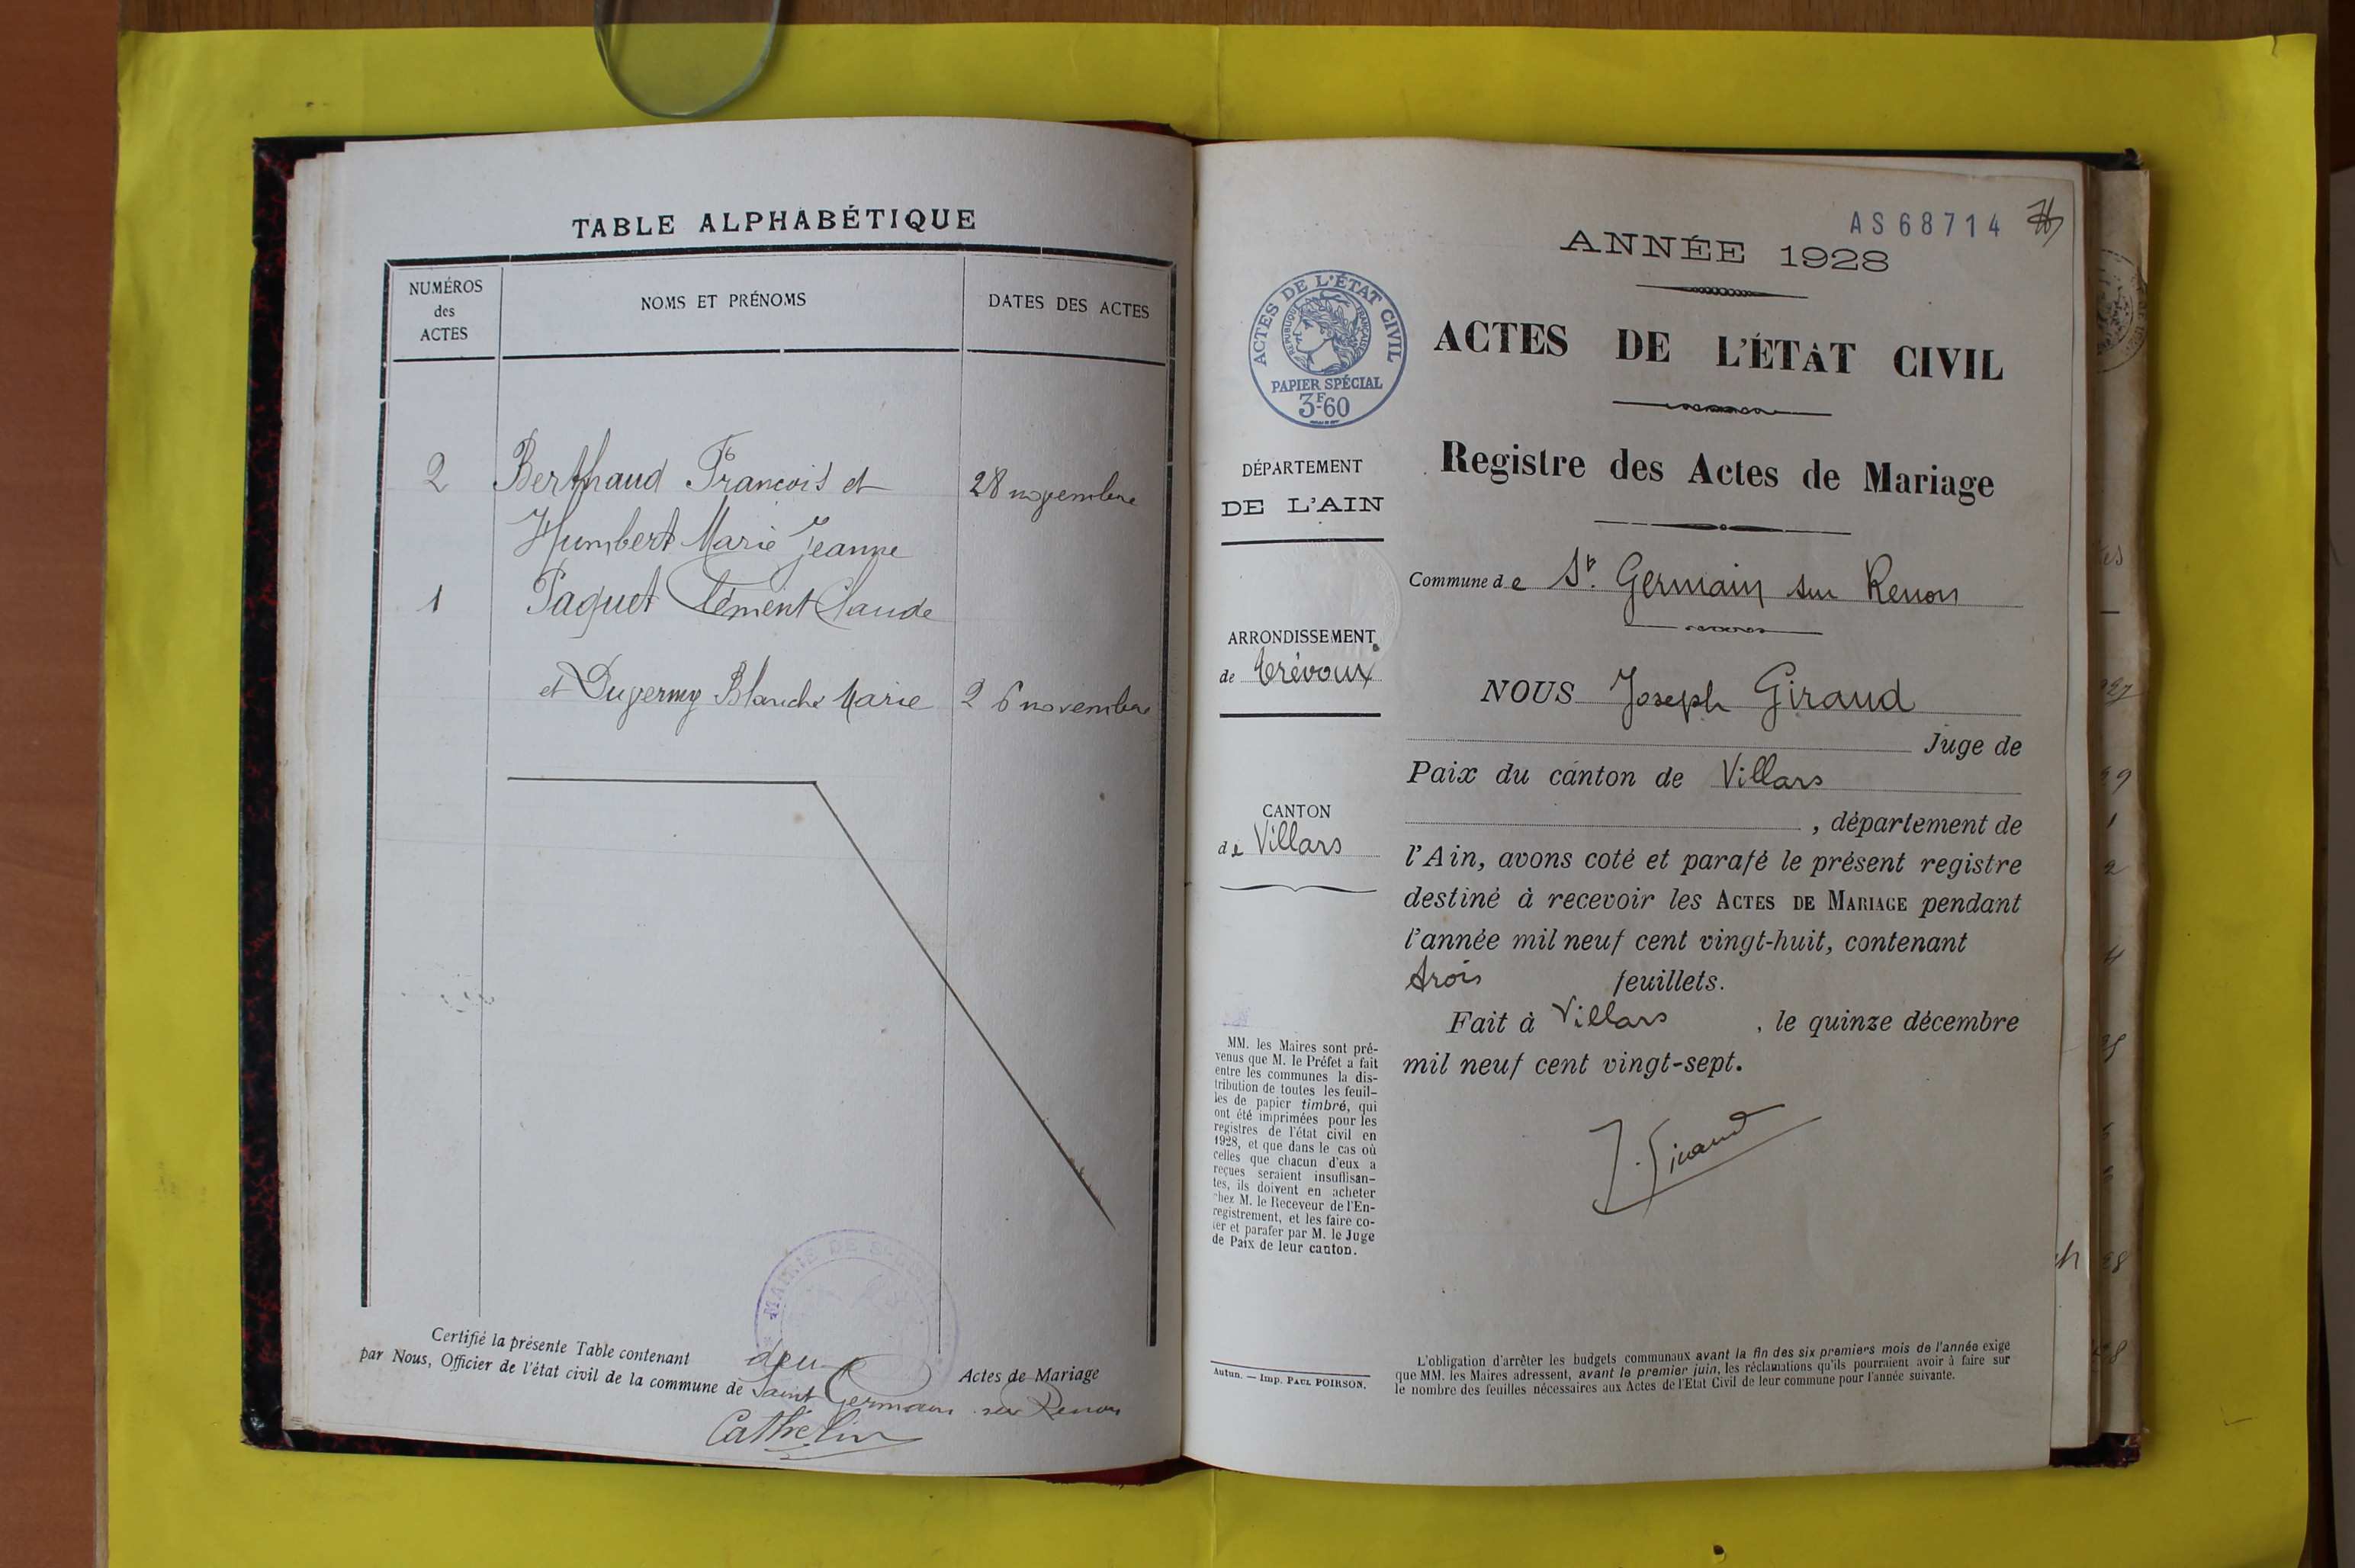 TABLE ALPHABÉTIQUE
NUMÉROS
des
ACTES
NOMS ET PRÉNOMS
DATES DES ACTES
2 Berthaud François et 28 novembre
Humbert Marie Jeanne
1 Paquet Clément Claude
et Duverney Blanche Marie 26 novembre
MAIRIE DE
Certifié la présente Table contenant deux Actes de Mariage
par Nous, Officier de l'état civil de la commune de Saint Germain sur Renon
Cathelin
AS 68714
ANNÉE 1928
ACTES DE L'ÉTAT CIVIL
RÉPUBLIQUE FRANÇAISE
PAPIER SPÉCIAL
3F60
ACTES DE L'ÉTAT CIVIL
Registre des Actes de Mariage
DÉPARTEMENT
DE L'AIN
ARRONDISSEMENT
de Trévoux
CANTON
de Villars
MM. les Maires sont pré-
venus que M. le Préfet a fait
entre les communes la dis-
tribution de toutes les feuil-
les de papier timbré, qui
ont été imprimées pour les
registres de l'état civil en
1928, et que dans le cas où
celles que chacun d'eux a
reçues seraient insuffisan-
tes, ils doivent en acheter
chez M. le Receveur de l'En-
registrement, et les faire co-
ter et parafer par M. le Juge
de Paix de leur canton.
Autun. — Imp. PAUL POIRSON.
Commune de St. Germain sur Renon
NOUS Joseph Giraud
Juge de
Paix du canton de Villars
, département de
l'Ain, avons coté et parafé le présent registre
destiné à recevoir les ACTES DE MARIAGE pendant
l'année mil neuf cent vingt-huit, contenant
trois feuillets.
Fait à Villars , le quinze décembre
mil neuf cent vingt-sept.
J. Giraud
L'obligation d'arrêter les budgets communaux avant la fin des six premiers mois de l'année exige
que MM. les Maires adressent, avant le premier juin, les réclamations qu'ils pourraient avoir à faire sur
le nombre des feuilles nécessaires aux Actes de l'Etat Civil de leur commune pour l'année suivante.